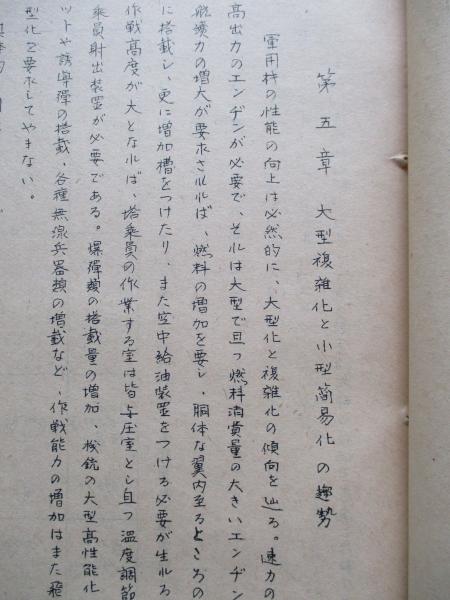 第五章　大型複雑化と小型簡易化の趨勢
軍用機の性能の向上は必然的に、大型化と複雑化の傾向を辿る。速力の
高出力のエンヂンが必要で、それは大型で且つ燃料消費量の大きいエンヂン
航續力の増大が要求されれば、燃料の増加を要し、胴体な翼内至るところの
に搭載し、更に増加槽をつけたり、また空中給油裝置をつける必要が生れる
作戦高度が大となれば、塔乗員の作業する室は皆与圧室とし且つ温度調節
乗員射出装置が必要である。爆彈類の搭載量の増加、機銃の大型高性能化
ットや誘導彈の搭載、各種無線兵器類の増載など、作戦能力の増加はまた飛
型化を要求してやまない。